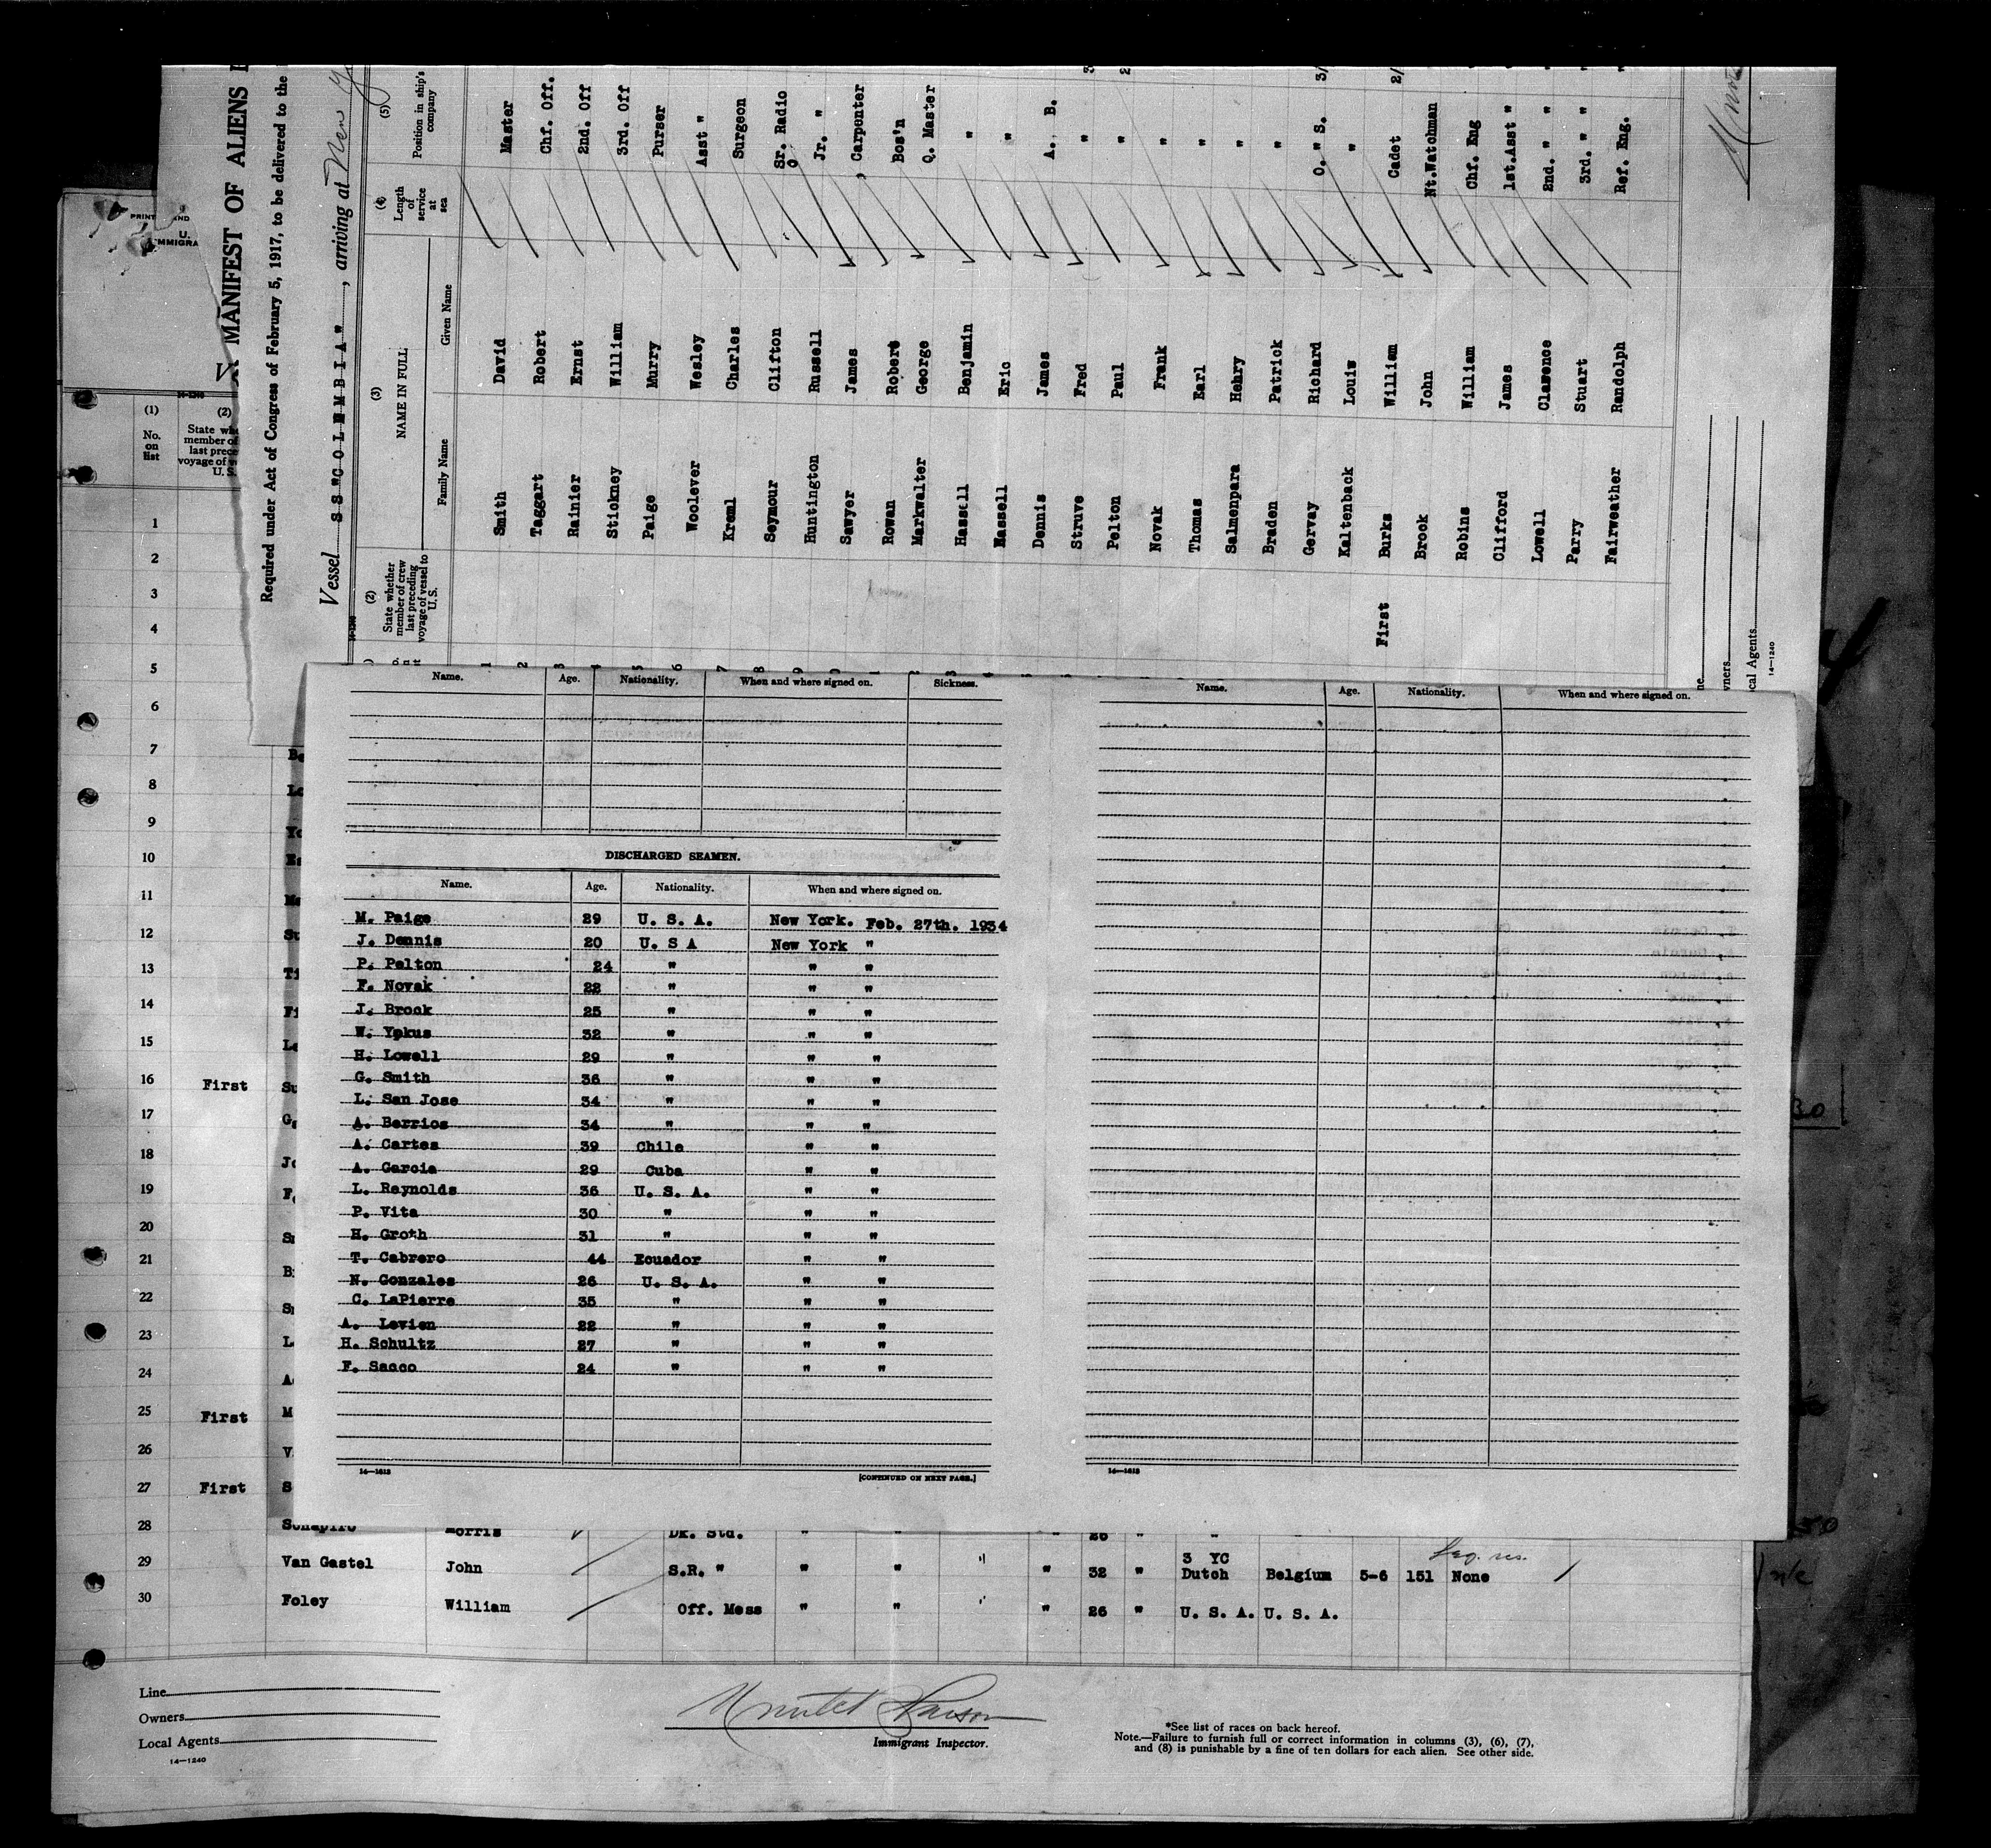 MANIFEST OF ALIENS
Required under Act of Congress of February 5, 1917, to be delivered to the
Vessel S S "COLUMBIA", arriving at New
(2) State whether member of crew last preceding voyage of vessel to U. S.
(3) NAME IN FULL
Family Name Given Name
(4) Length of service at sea
(5) Position in ship's company
Smith David Master
Taggart Robert Chf. Off.
Rainier Ernst 2nd. Off
Stickney William 3rd. Off
Paige Murry Purser
Woolever Wesley Asst "
Kreml Charles Surgeon
Seymour Clifton Sr. Radio
Huntington Russell Jr. "
Sawyer James Carpenter
Rowan Robert Bos'n
Markwalter George Q. Master
Hassell Benjamin "
Massell Eric "
Dennis James A. B.
Struve Fred "
Pelton Paul "
Novak Frank "
Thomas Earl "
Salmenpara Hehry "
Braden Patrick "
Gervay Richard O. " S.
Kaltenback Louis "
First Burks William Cadet
Brock John Nt.Watchman
Robins William Chf. Eng
Clifford James 1st.Asst "
Lowell Clasence 2nd. " "
Parry Stuart 3rd. " "
Fairweather Randolph Ref. Eng.
wners
cal Agents
14—1240
PRINT AND
U.
IMMIGRA
(1) No. on list
(2) State whe
member of
last prece
voyage of v
U. S.
1
2
3
4
5
6
7
8
9
10
11
12
13
14
15
16 First
17
18
19
20
21
22
23
24
25 First
26
27 First
Name. Age. Nationality. When and where signed on. Sickness.
DISCHARGED SEAMEN.
Name. Age. Nationality. When and where signed on.
M. Paige 29 U. S. A. New York. Feb. 27th. 1934
J. Dennis 20 U. S A New York "
P. Pelton 24 " " "
F. Novak 22 " " "
J. Brock 25 " " "
W. Ypkus 32 " " "
H. Lowell 29 " " "
G. Smith 36 " " "
L. San Jose 34 " " "
A. Berrios 34 " " "
A. Cartes 39 Chile " "
A. Garcia 29 Cuba " "
L. Reynolds 36 U. S. A. " "
P. Vita 30 " " "
H. Groth 31 " " "
T. Cabrero 44 Ecuador " "
N. Gonzales 26 U. S. A. " "
C. LaPierre 35 " " "
A. Levien 22 " " "
H. Schultz 27 " " "
F. Sacco 24 " " "
14—1613 [CONTINUED ON NEXT PAGE.]
Name. Age. Nationality. When and where signed on.
14—1613
28 Schapiro Morris Dk. Std. " " " 26 " "
29 Van Gastel John S.R. " " " " " 32 " 3 YC Dutch Belgium 5-6 151 None
30 Foley William Off. Mess " " " " 26 " U. S. A. U. S. A.
Line
Owners
Local Agents
14—1240
Immigrant Inspector.
*See list of races on back hereof.
Note.—Failure to furnish full or correct information in columns (3), (6), (7),
and (8) is punishable by a fine of ten dollars for each alien. See other side.